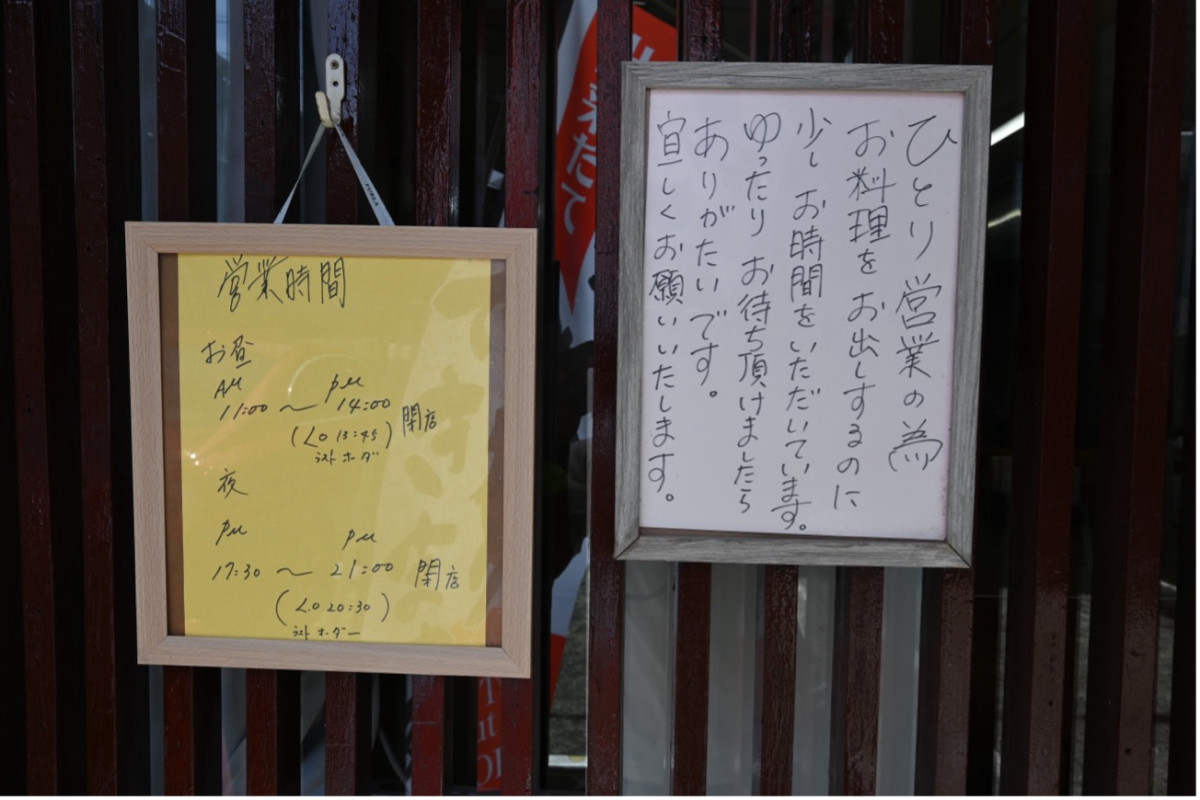 営業時間
お昼
AM PM
11:00 〜 14:00 閉店
(L.O 13:45)
ラストオーダ
夜
PM PM
17:30 〜 21:00 閉店
(L.O 20:30)
ラストオーダー
ひとり営業の為
お料理をお出しするのに
少しお時間をいただいています。
ゆったりお待ち頂けましたら
ありがたいです。
宜しくお願いいたします。
FURLA